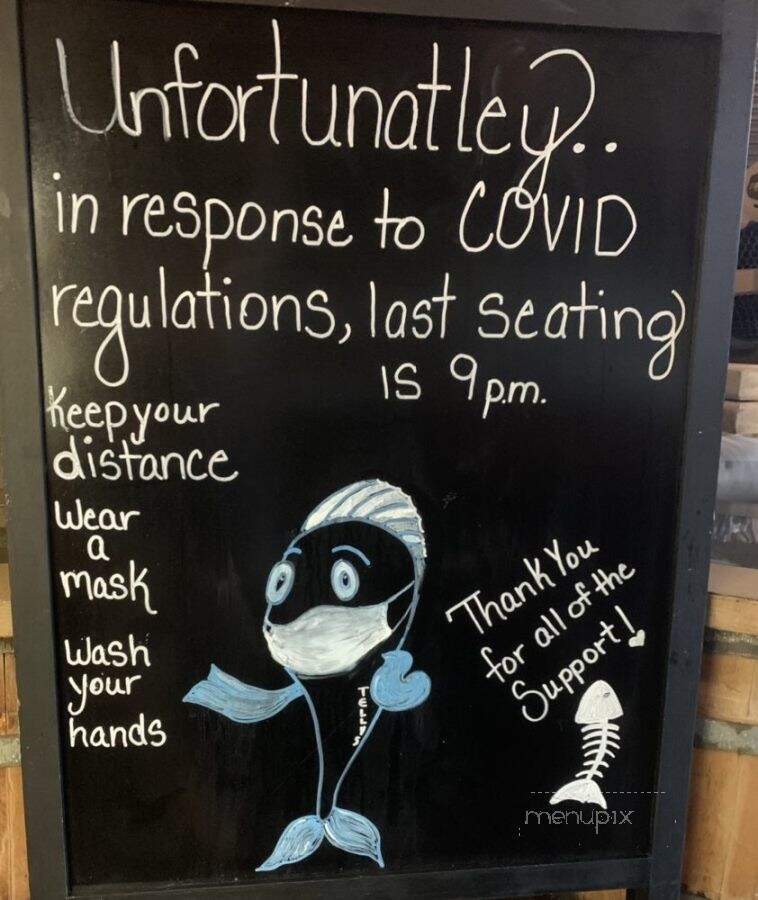 Unfortunatley..
in response to COVID
regulations, last seating
is 9p.m.
Keep your
distance
Wear
a
mask
Wash
your
hands
Thank You
for all of the
Support!
menupix